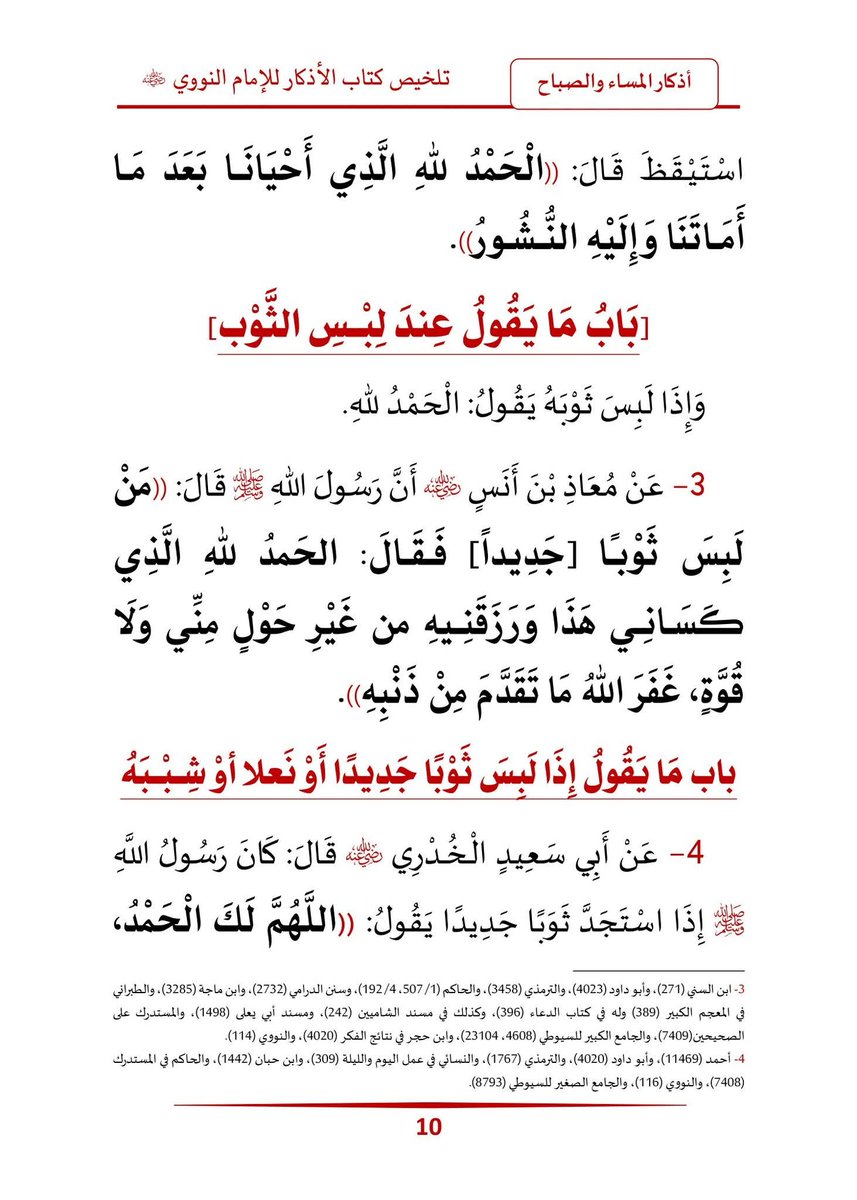 أذكار المساء والصباح
تلخيص كتاب الأذكار للإمام النووي ﵁
اسْتَيْقَظَ قَالَ: ((الْحَمْدُ للهِ الَّذِي أَحْيَانَا بَعَدَ مَا
أَمَاتَنَا وَإِلَيْهِ النُّشُورُ)).
[بَابُ مَا يَقُولُ عِندَ لِبْسِ الثَّوْب]
وَإِذَا لَبِسَ ثَوْبَهُ يَقُولُ: الْحَمْدُ للهِ.
3- عَنْ مُعَاذِ بْنَ أَنَسٍ ﵁ أَنَّ رَسُولَ اللهِ ﷺ قَالَ: ((مَنْ
لَبِسَ ثَوْبًا [جَدِيداً] فَقَالَ: الحَمدُ للهِ الَّذِي
كَسَانِي هَذَا وَرَزَقَنِيهِ من غَيْرِ حَوْلٍ مِنِّي وَلَا
قُوَّةٍ، غَفَرَ اللهُ مَا تَقَدَّمَ مِنْ ذَنْبِهِ)).
باب مَا يَقُولُ إِذَا لَبِسَ ثَوْبًا جَدِيدًا أَوْ نَعلا أوْ شِبْبَهُ
4- عَنْ أَبِي سَعِيدٍ الْخُدْرِي ﵁ قَالَ: كَانَ رَسُولُ اللَّهِ
ﷺ إِذَا اسْتَجَدَّ ثَوبًا جَدِيدًا يَقُولُ: ((اللَّهُمَّ لَكَ الْحَمْدُ،
3- ابن السني (271)، وأبو داود (4023)، والترمذي (3458)، والحاكم (1/ 507، 4/ 192)، وسنن الدرامي (2732)، وابن ماجة (3285)، والطبراني
في المعجم الكبير (389) وله في كتاب الدعاء (396)، وكذلك في مسند الشاميين (242)، ومسند أبي يعلى (1498)، والمستدرك على
الصحيحين(7409)، والجامع الكبير للسيوطي (4608، 23104)، وابن حجر في نتائج الفكر (4020)، والنووي (114).
4- أحمد (11469)، وأبو داود (4020)، والترمذي (1767)، والنسائي في عمل اليوم والليلة (309)، وابن حبان (1442)، والحاكم في المستدرك
(7408)، والنووي (116)، والجامع الصغير للسيوطي (8793).
10